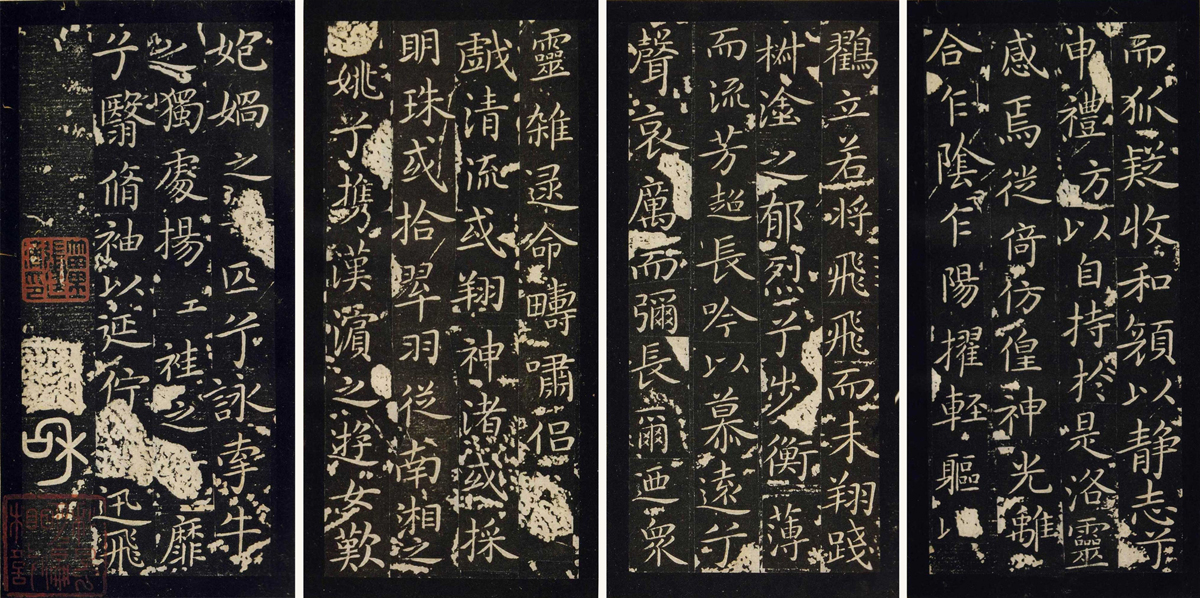 而狐疑收和顏以靜志兮
申禮方以自持於是洛靈
感焉徙倚彷徨神光離
合乍陰乍陽擢輕軀以
鸖立若將飛飛而未翔踐
樹塗之郁烈兮步衡薄
而流芳超長吟以慕遠兮
聲哀厲而彌長爾迺衆
靈雜遝命疇嘯侶
戲清流或翔神渚或採
明珠或拾翠羽從南湘之
姚兮携漢濱之遊女歎
媧之匹兮詠牽牛
之獨處揚袿之靡
兮翳脩袖以延佇迅飛